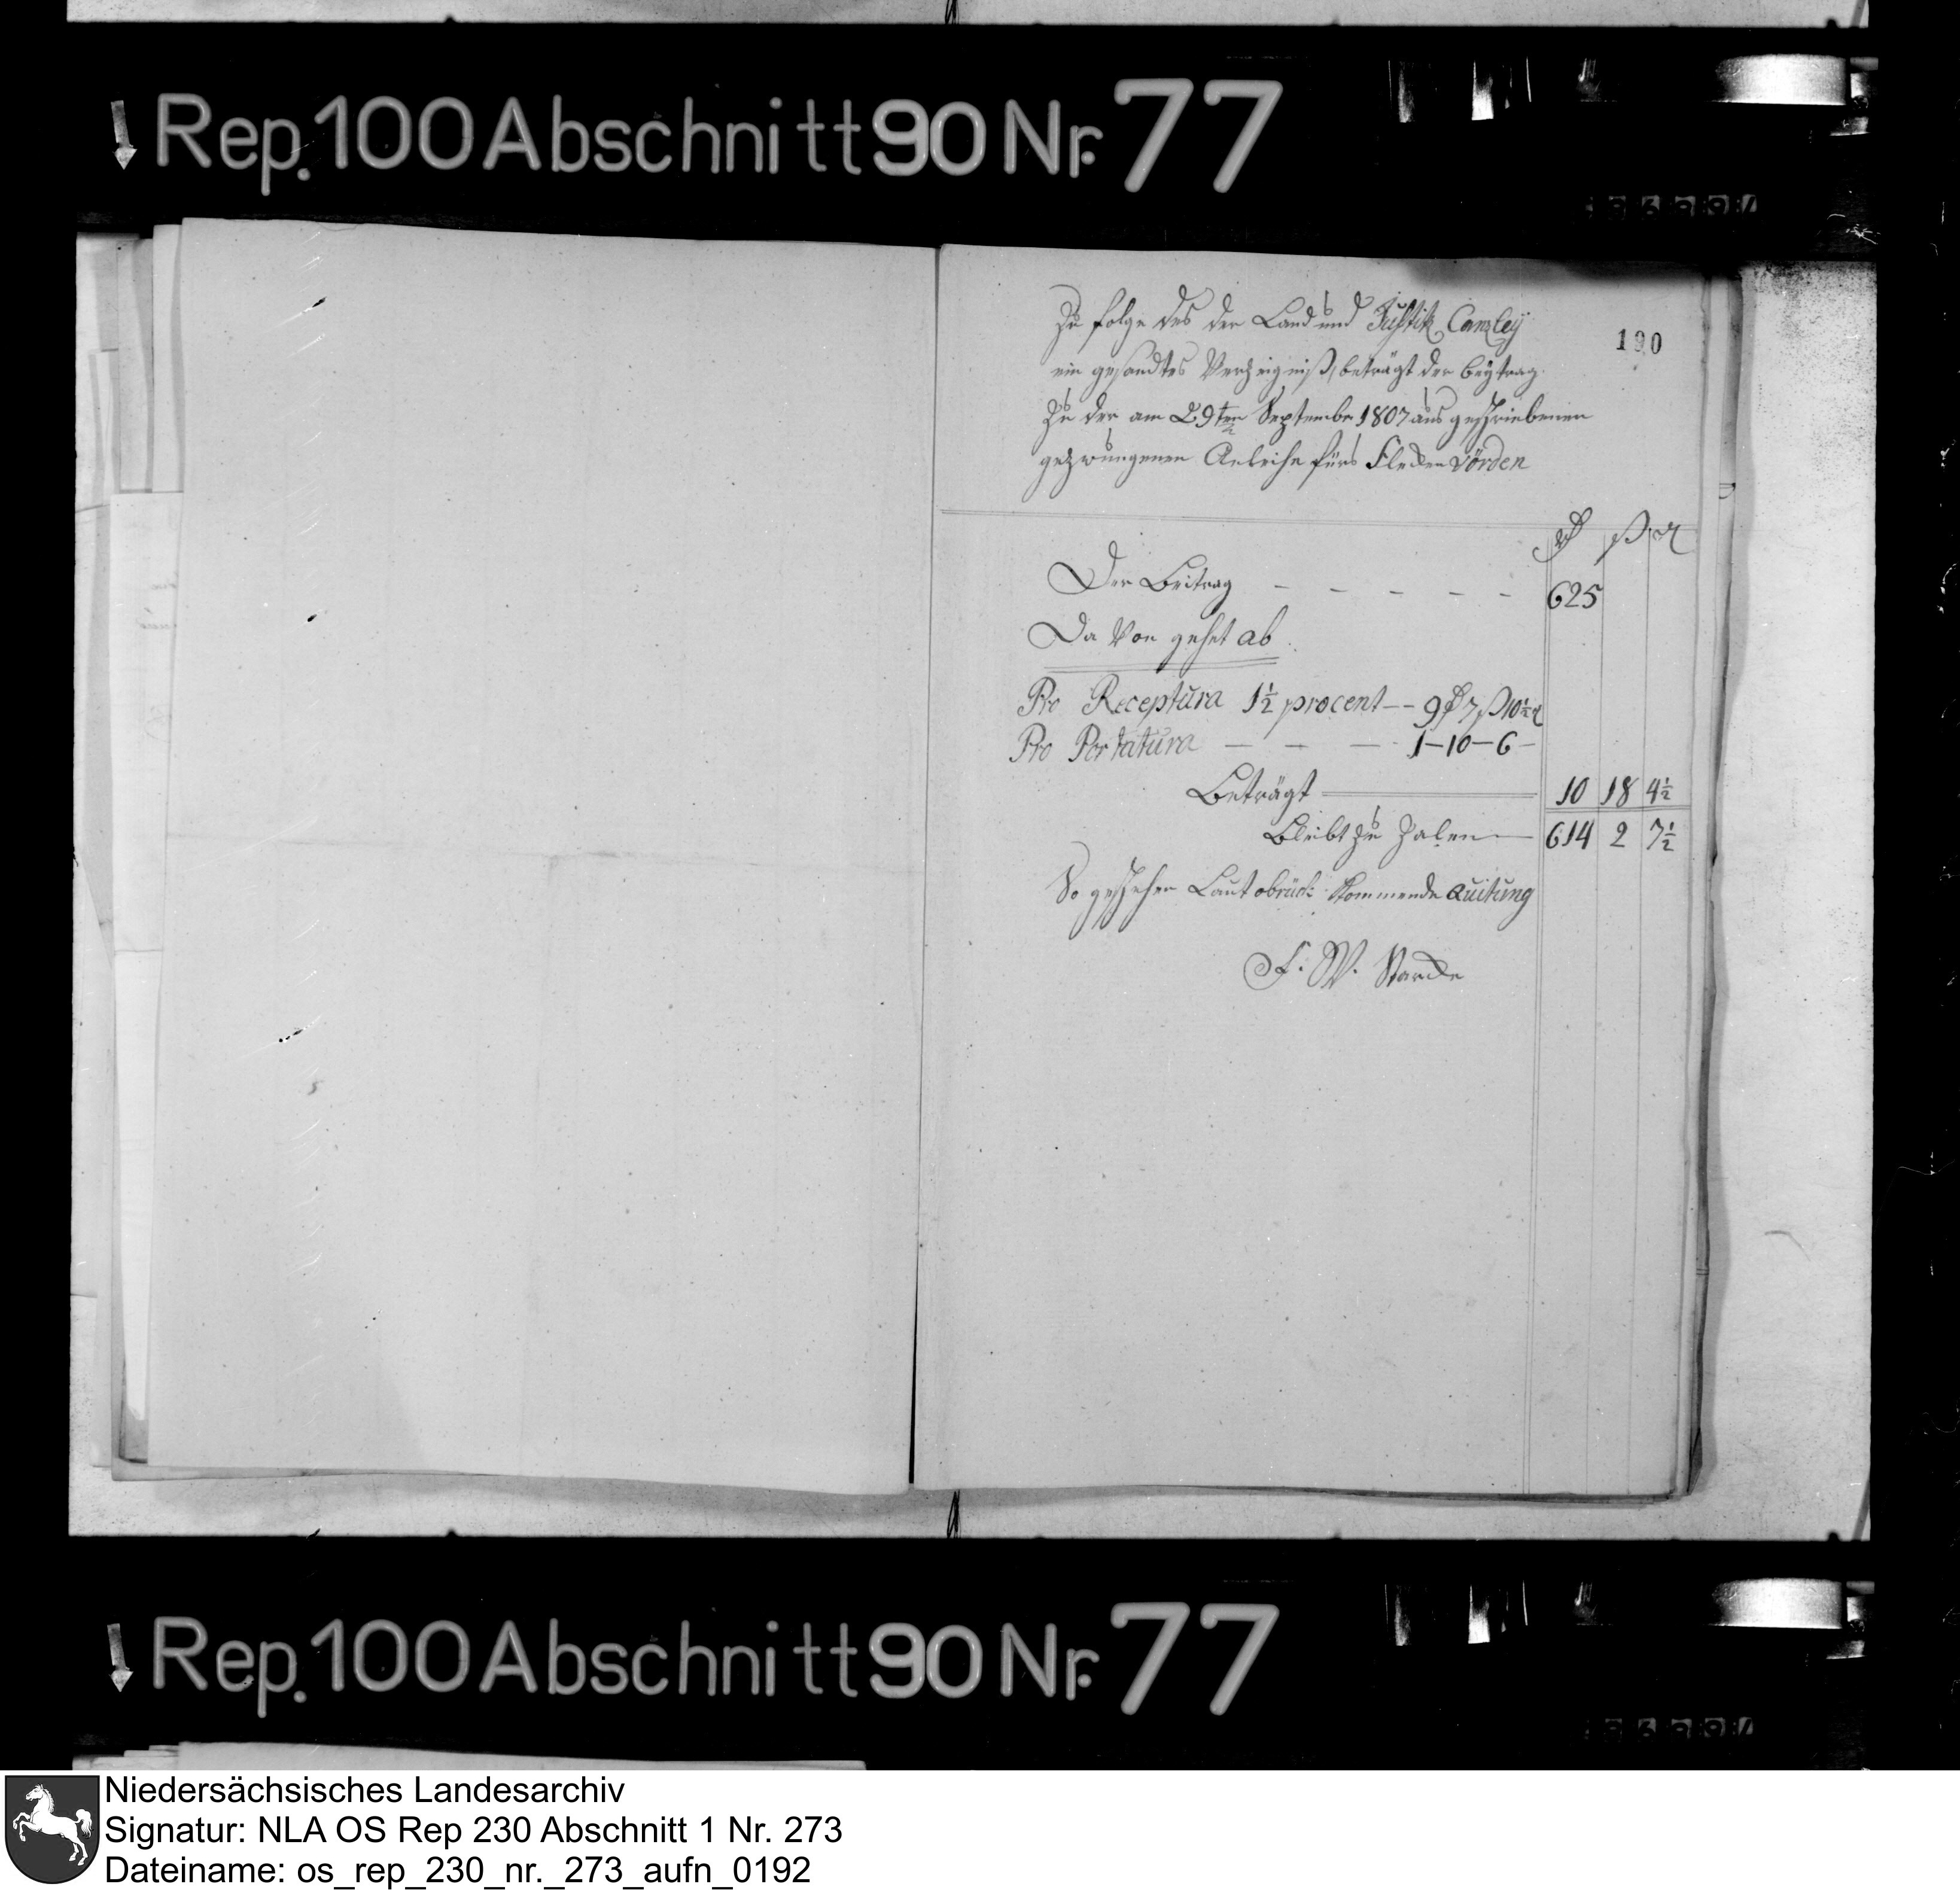 Rep. 100 Abschnitt 90 Nr. 77
Zu folge des der Land und Justitz Canzley
ein gesandtes Verzeigniß, beträgt der beytrag
190
Zu der am 29ten September 1807 aus geschriebenen
gezwungenen Anleihe fürs Flecken Vörden
Der Beitrag - - - - - 625
Da Von gehet ab
Pro Receptura 1½ procent -- 9 7 ß 10½ d
Pro Portatura - - - 1-10-6-
Beträgt 10 18 4½
Bleibt zu Zalen 614 2 7½
So geschehen Laut obrück kommende Quitung
F. W. Starcke
Rep. 100 Abschnitt 90 Nr. 77
Niedersächsisches Landesarchiv
Signatur: NLA OS Rep 230 Abschnitt 1 Nr. 273
Dateiname: os_rep_230_nr._273_aufn_0192